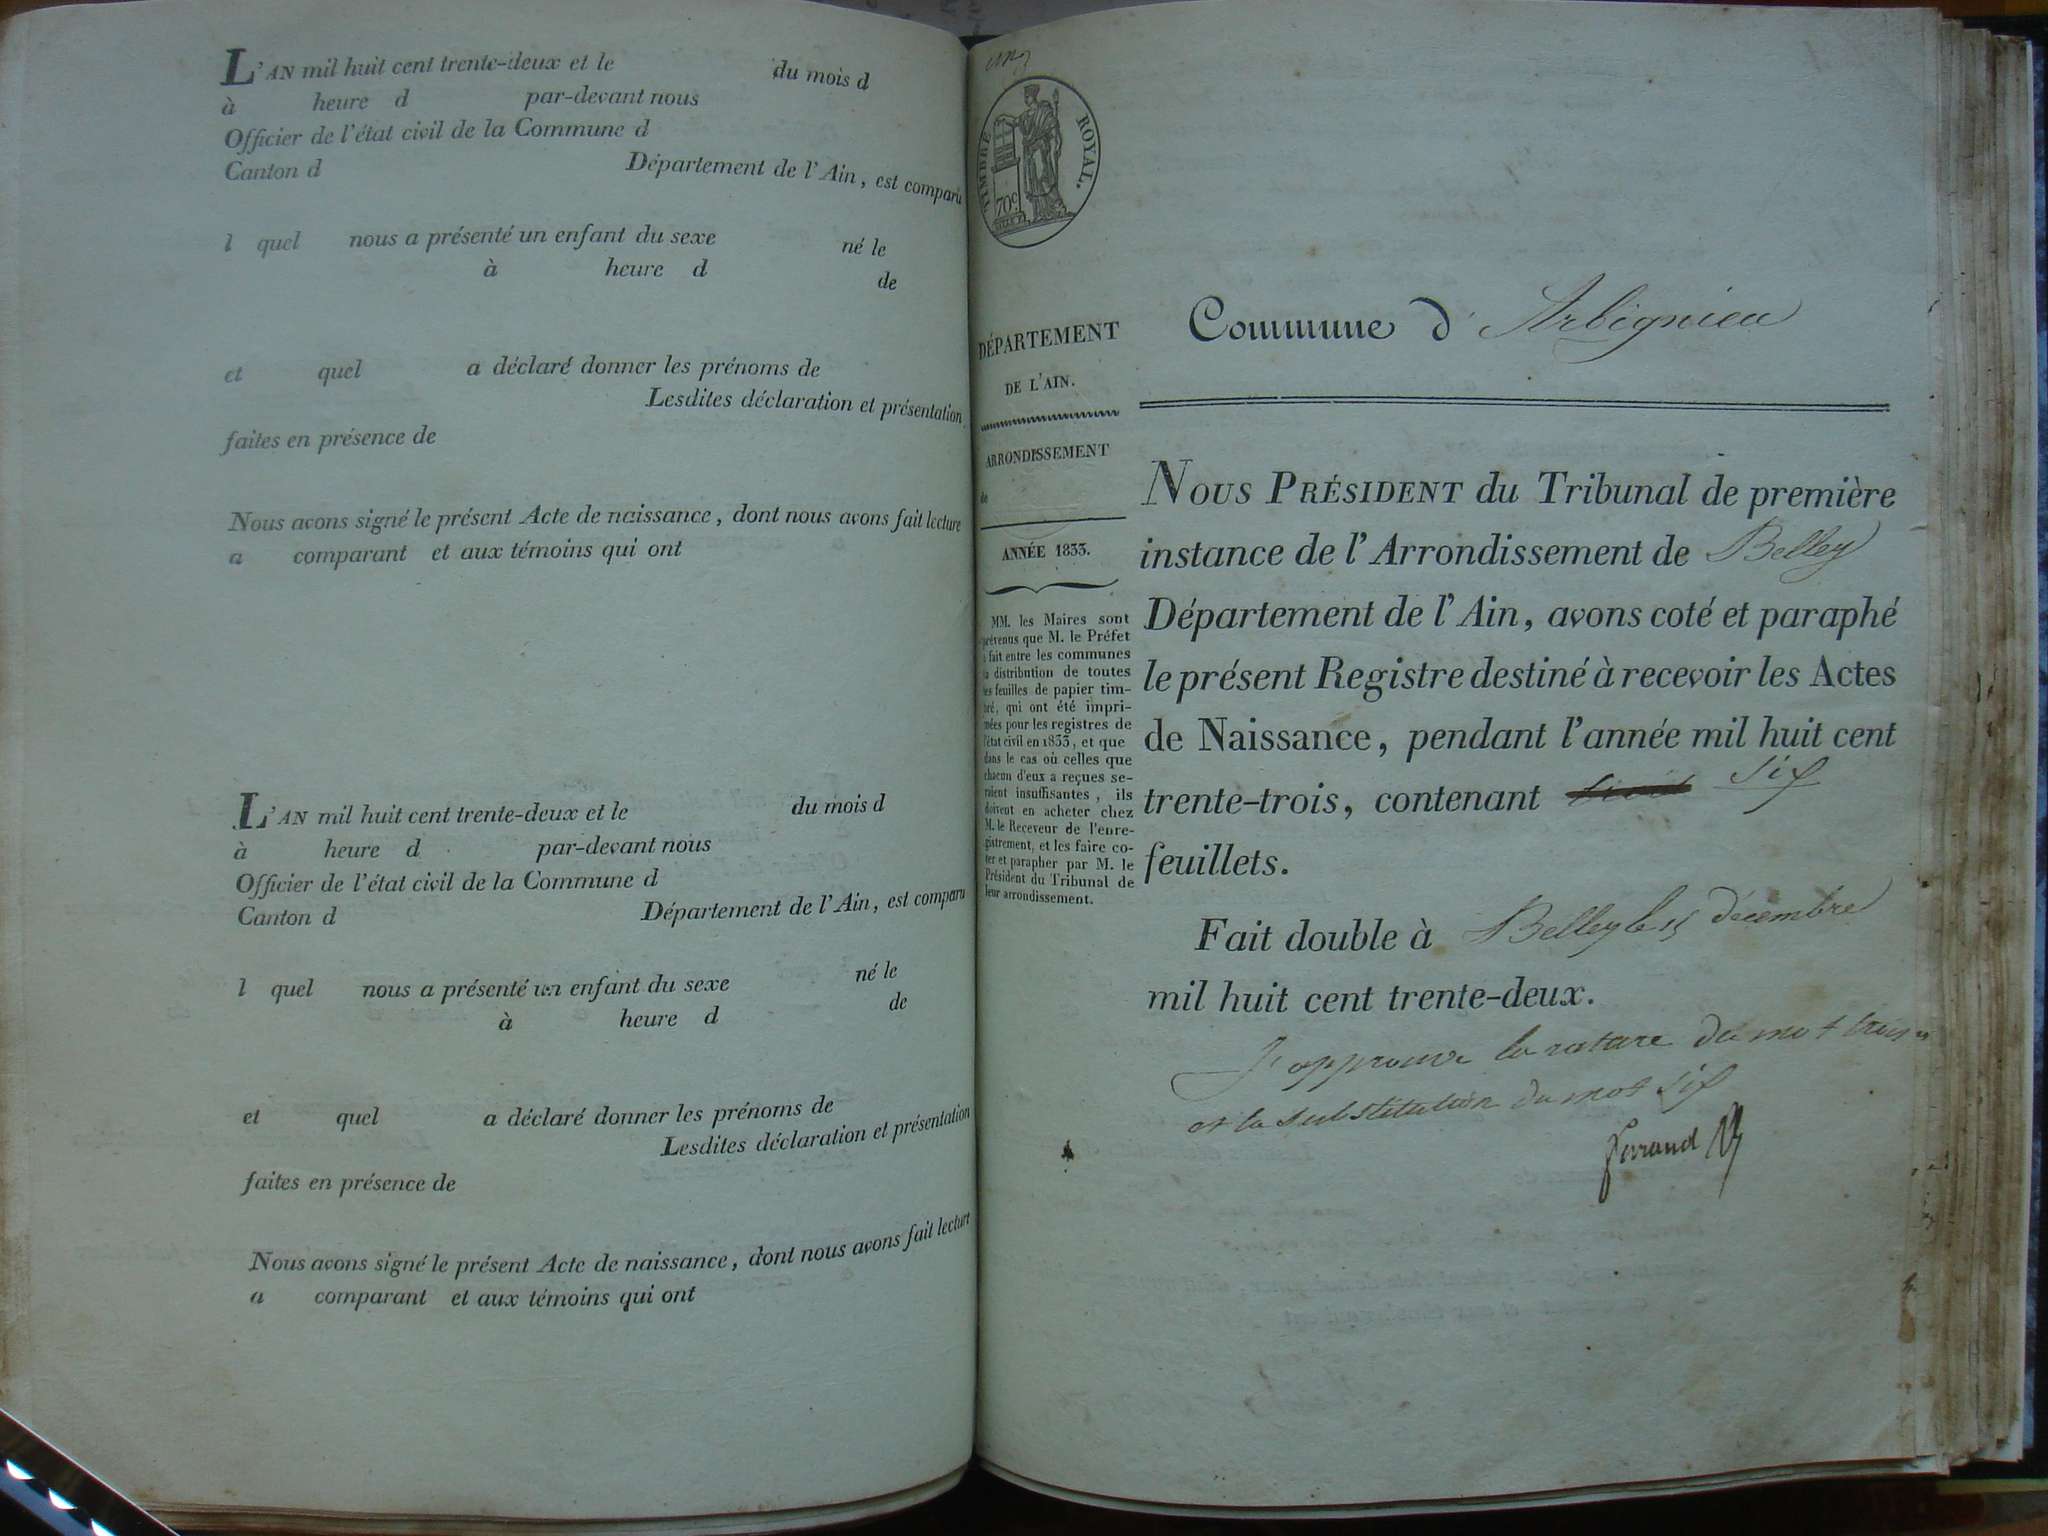 L'AN mil huit cent trente-deux et le du mois d
à heure d par-devant nous
Officier de l'état civil de la Commune d
Canton d Département de l'Ain, est comparu
l quel nous a présenté un enfant du sexe né le
à heure d de
et quel a déclaré donner les prénoms de
Lesdites déclaration et présentation
faites en présence de
Nous avons signé le présent Acte de naissance, dont nous avons fait lecture
a comparant et aux témoins qui ont
L'AN mil huit cent trente-deux et le du mois d
à heure d par-devant nous
Officier de l'état civil de la Commune d
Canton d Département de l'Ain, est comparu
l quel nous a présenté un enfant du sexe né le
à heure d de
et quel a déclaré donner les prénoms de
Lesdites déclaration et présentation
faites en présence de
Nous avons signé le présent Acte de naissance, dont nous avons fait lecture
a comparant et aux témoins qui ont
TIMBRE ROYAL.
70c.
DÉPARTEMENT
DE L'AIN.
ARRONDISSEMENT
de
ANNÉE 1833.
MM. les Maires sont
prévenus que M. le Préfet
a fait entre les communes
la distribution de toutes
les feuilles de papier tim-
bré, qui ont été impri-
mées pour les registres de
l'état civil en 1833, et que
dans le cas où celles que
chacun d'eux a reçues se-
raient insuffisantes, ils
doivent en acheter chez
M. le Receveur de l'enre-
gistrement, et les faire co-
ter et parapher par M. le
Président du Tribunal de
leur arrondissement.
Commune d'Arbignieu
NOUS PRÉSIDENT du Tribunal de première
instance de l'Arrondissement de Belley
Département de l'Ain, avons coté et paraphé
le présent Registre destiné à recevoir les Actes
de Naissance, pendant l'année mil huit cent
trente-trois, contenant trois six
feuillets.
Fait double à Belley le 15 décembre
mil huit cent trente-deux.
J'approuve la rature du mot trois
et la substitution du mot six